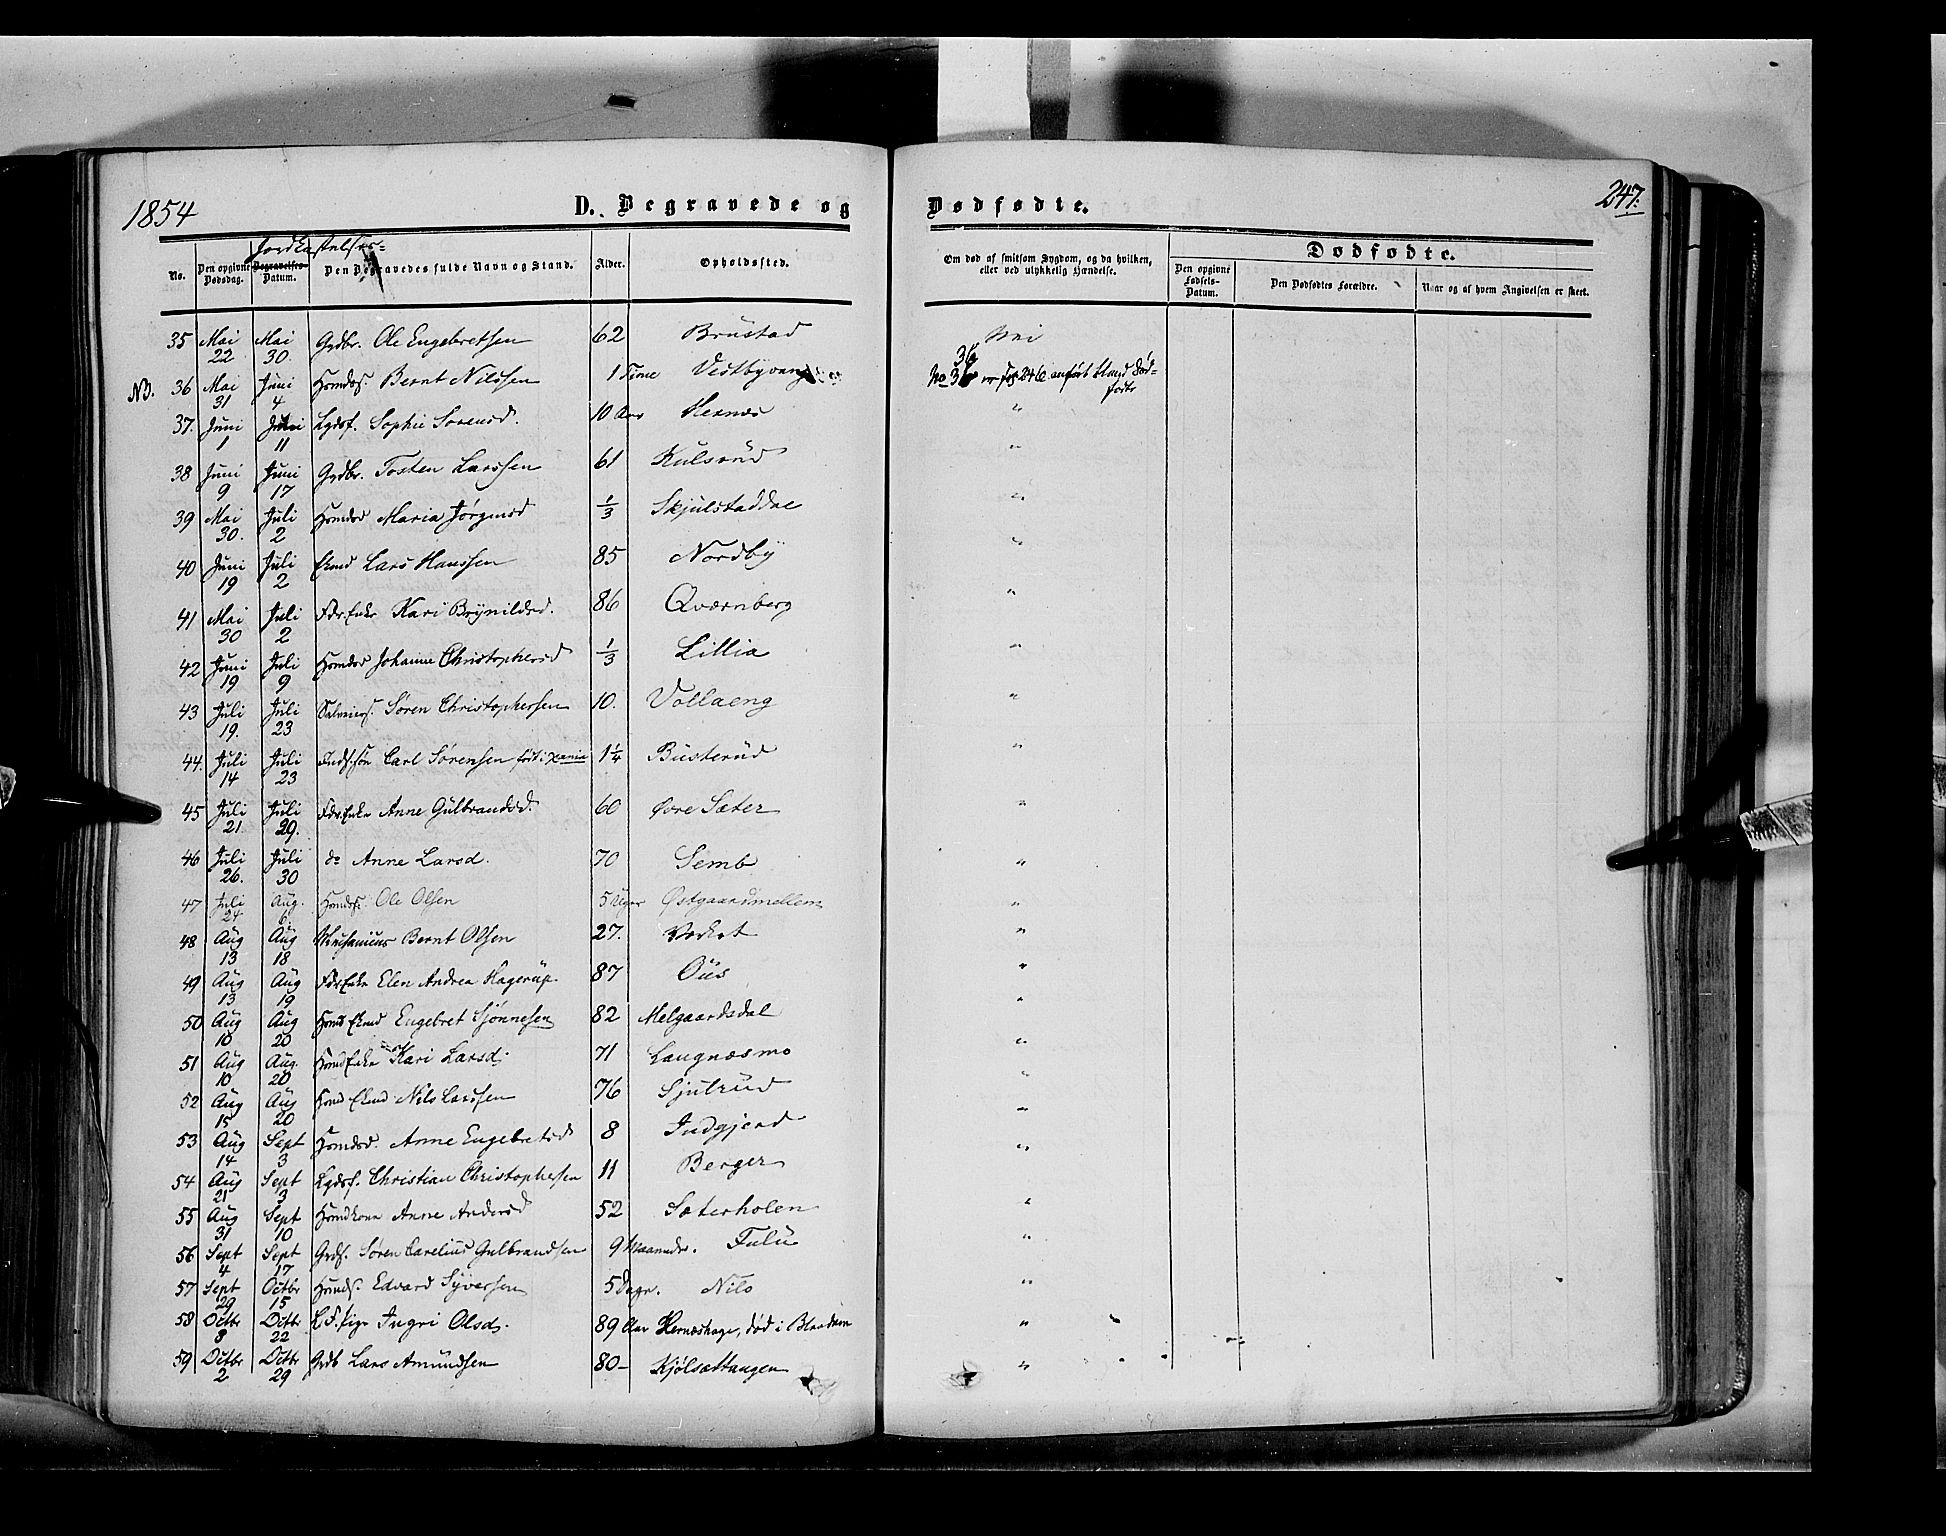 1854 D. Begravede og Dødfødte. 247.
Jordkastelses=
No. Den opgivne Dødsdag. Begravelses-Datum. Den Begravedes fulde Navn og Stand. Alder. Opholdssted. Om død af smitsom Sygdom, og da hvilken, eller ved ulykkelig Hændelse. Dødfødte.
Den opgivne Fødsels-Datum. Den Dødfødtes Forældre. Naar og af hvem Angivelsen er skeet.
35 Mai 22 Mai 30. Grdbr. Ole Engebretsen 62 Brustad Nei
NB. 36 Mai 31 Juni 4 Hmdss. Bernt Nilssen 1 Time Vestbyvang No 36 er fol 246 anført blandt Død=fødte
37. Juni 1 Juni 11 Lgdsf. Sophie Sorensd. 10 Aar Hernæs "
38 Juni 9 Juni 17 Grdbr. Tosten Larssen 61 Kulsrud "
39 Mai 30. Juli 2 Hmdsd Maria Jørgensd 1/3 Skjulstaddal "
40 Juni 19 Juli 2 Ekmd Lars Hanssen 85 Nordby "
41 Mai 30 Juli 2 FdrEnke Kari Brynildsd. 86 Qværnberg "
42 Juni 19 Juli 9 Hmdsd Johanne Christophersd 1/3 Lillia "
43 Juli 19. Juli 23 Søren Christophersen 10. Vollaeng "
44. Juli 14 Juli 23 Indssøn Carl Sørensen født i Xania 1 1/4 Busterud "
45 Juli 21 Juli 29. FdrEnke Anne Gulbrandsd. 60 Øvre Sæter "
46 Juli 26. Juli 30 do Anne Larsd. 70 Semb "
47 Juli 24 Aug. 6 Hmdss. Ole Olsen 5 Uger Østgaardmellem "
48 Aug 13 Aug 18 Bernt Olsen 27. "
49 Aug 13 Aug 19 FdrEnke Elen Andrea Hagerup. 87 Ous "
50 Aug 10 Aug 20 Hmd Ekmd Engebret Sjønnesen 82 Melgaardsdal "
51 Aug 10 Aug. 20 HmdEnke Kari Larsd. 71 Laugnæsmo "
52 Aug 15 Aug 20 Hmd Ekmd Nils Larssen 76 Sjulrud "
53 Aug 14 Sept 3 Hmdsd. Anne Engebretsd 8 Indgjerd "
54 Aug 21 Sept 3 Lgdsf. Christian Christophersen 11 Berger "
55 Aug 31 Sept 10 Hmdkone Anne Andersd 52 Sæterholen "
56 Sept 4 Sept 17 Grds. Søren Carelius Gulbrandsen 9 Maaneder. Fulu "
57 Sept 29 Octbr 15 Hmdss. Edvard Syversen 5 Dage. Nilo "
58 Octbr 8 Octbr 22 L.F. Pige Ingri Olsd. 89 Aar Hernæshage, død i Blandum "
59 Octbr 2 Octbr 29 Grdb Lars Amundsen 80- Kjølsættangen "